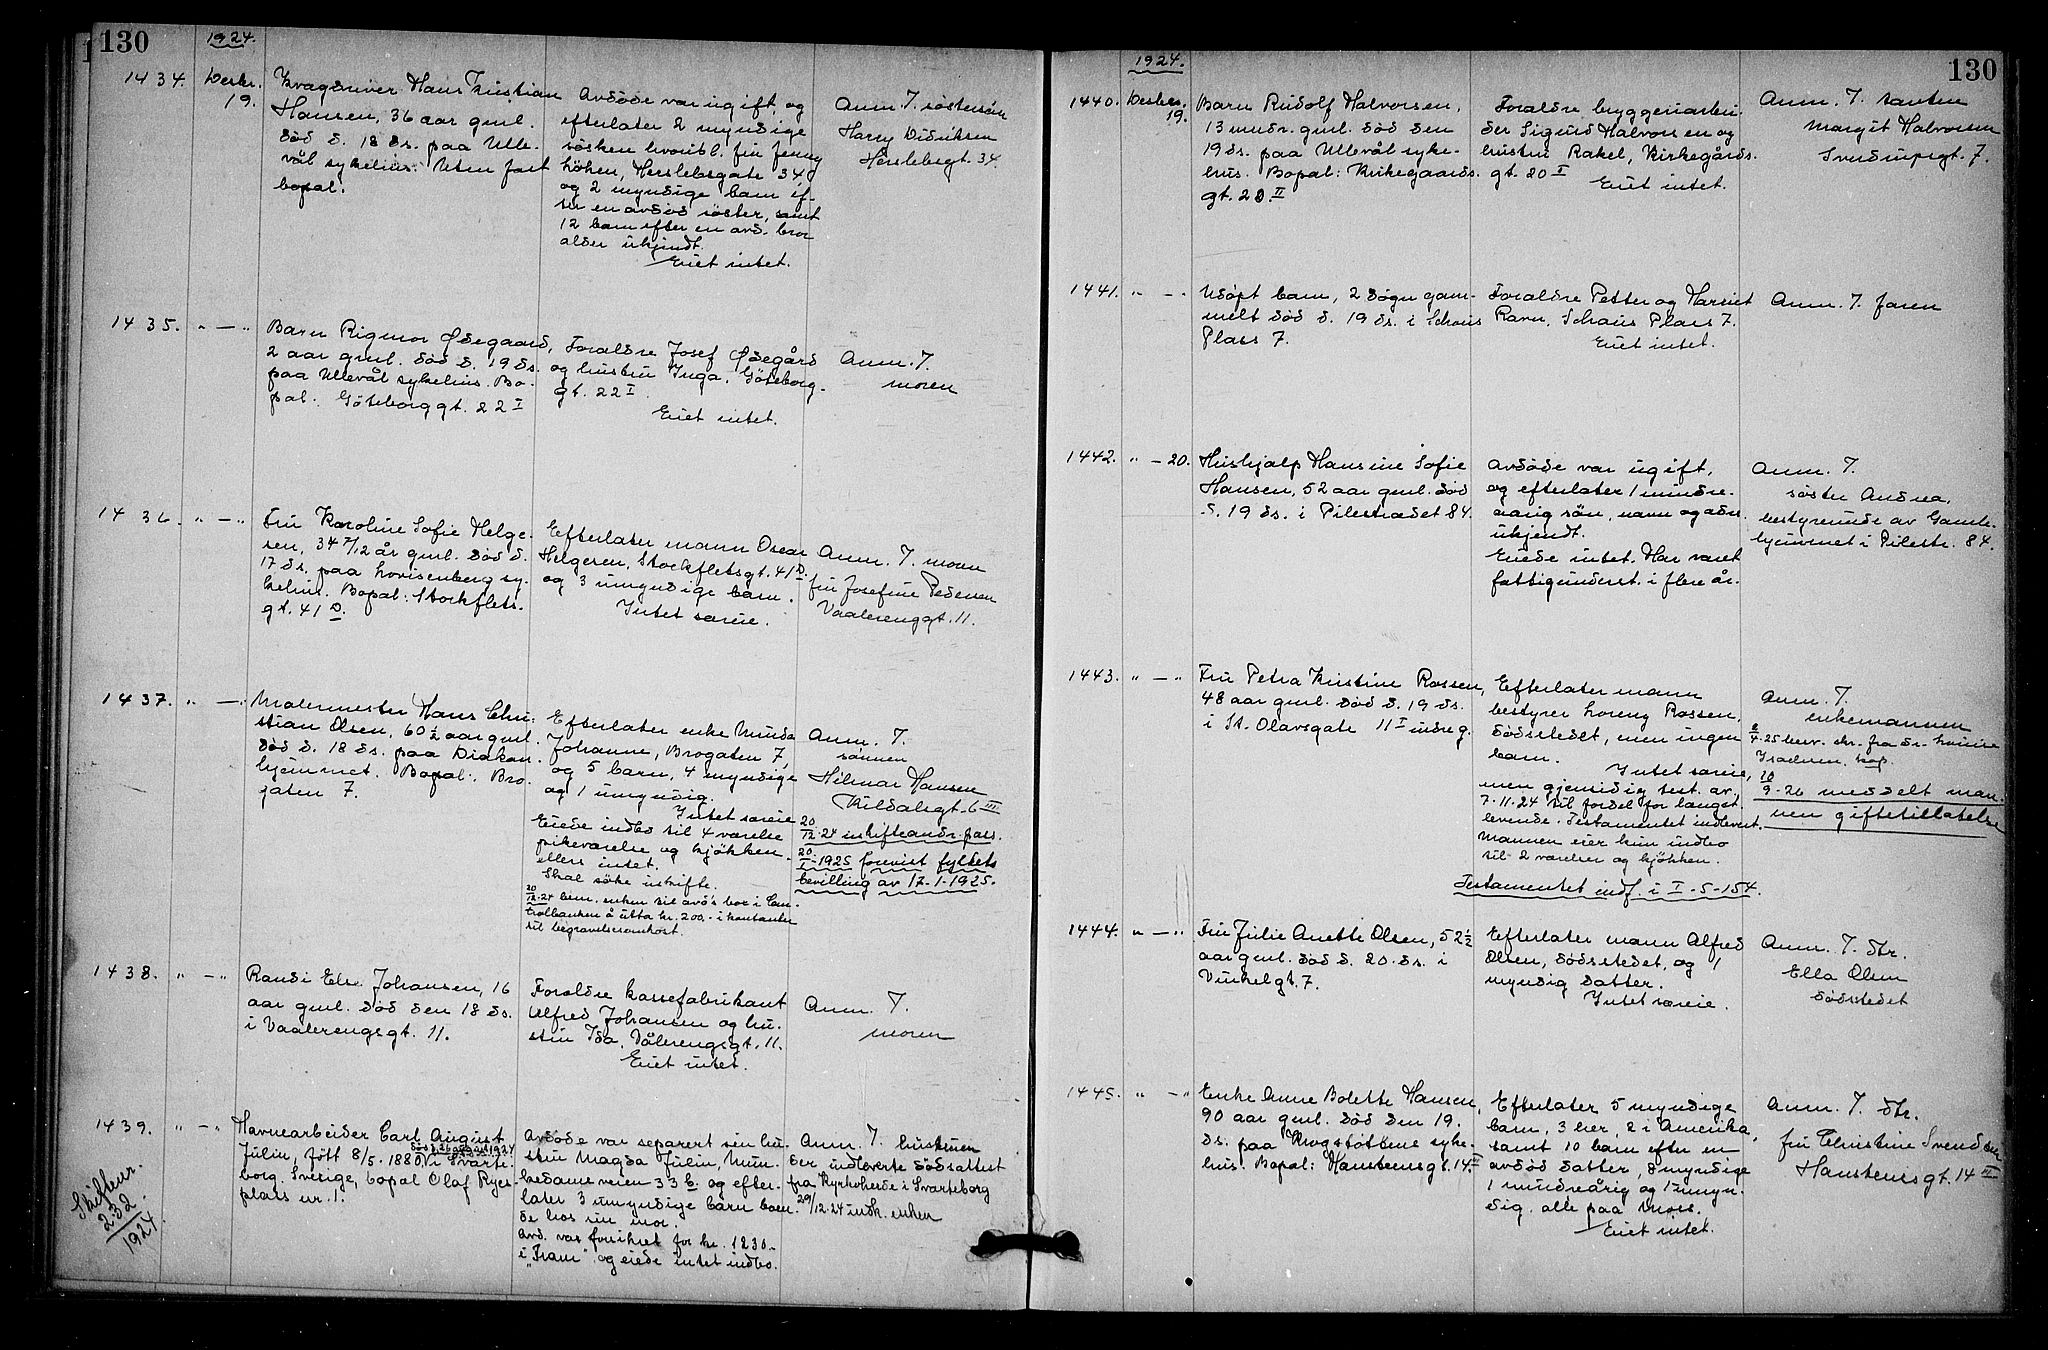 130
1924.
1434. Desbr. 19.
Hansen, 36 aar gml.
död d. 18 ds. paa Ulle-
vål sykehus. Uten fast
bopæl.
Avdöde var ugift, og
efterlater 2 myndige
sösken hvoribl. fru Jenny
Herslebsgate 34
og 2 myndige barn ef-
ter en avdöd söster, samt
12 barn efter en avd. bror
alder ukjendt.
Eiet intet.
Anm. J. söstersön
Harry Didriksen
Herslebsgt. 34
1435. " — "
Barn Rigmor Ödegaard,
2 aar gml. död d. 19 ds.
paa Ullevål sykehus. Bo-
pæl: Göteborggt. 22 I
Foraldre Josef Ödegård
og hustru Inga. Göteborg-
gt. 22 I.
Eiet intet.
Anm. J.
moren
1436. " — "
Fru Karoline Sofie Helge-
sen, 34 7/12 år gml. död d.
17 ds. paa Lovisenberg sy-
kehus. Bopæl: Stockflets-
gt. 41 D.
Efterlater mann Oscar
Helgesen, Stockfletsgt. 41 D
og 3 umyndige barn.
Intet særeie.
Anm. J. moren
fru Josefine Pedersen
Vaalerenggt. 11.
1437. " — "
Malermester Hans Chri-
stian Olsen, 60 1/2 aar gml.
död d. 18 ds. paa Diakon-
hjemmet. Bopæl: Bro-
gaten 7.
Efterlater enke Minda
Johanne, Brogaten 7,
og 5 barn, 4 myndige
og 1 umyndig.
Intet særeie
Eiede indbo til 4 værelse
pikeværelse og kjökken
ellers intet.
Skal söke uskifte.
20/12-24 bem. enken til avd's bo i Cen-
tralbanken å utta kr. 200,- i kontanter
til begravelsesomkost.
Anm. J.
sönnen
Hilmar Hansen
Kildalsgt. 6 III
20/12-24 uskifteandr. pass.
20/1-1925 forevist fylkets
bevilling av 17-1-1925.
1438. " — "
Randi Else Johansen, 16
aar gml. död den 18 ds.
i Vaalerengsgt. 11.
Foraldre kassefabrikant
Alfred Johansen og hu-
stru Ida, Vålerengsgt. 11.
Eiet intet.
Anm. J.
moren
1439. " — "
Skiftenr.
232
1924.
Havnearbeider Carl August
död 21 august 1924
Julin, född 8/5. 1880 i Svarte-
borg, Sverige, bopæl Olaf Ryes-
plass nr. 1.
Avdöde var separert sin hu-
stru Magda Julin, Mun-
kedamsveien 33 b. og efter-
later 3 umyndige barn boen-
de hos sin mor.
Avd. var forsikret for kr. 1230.-
i "Fram" og eiede intet indbo.
Anm. J. hustruen
der indleverte dödsattest
fra Kyrkoherde i Svarteborg
29/12-24 indk. enken
130
1924.
1440. Desbr. 19.
Barn Rudolf Halvorsen,
13 mndr. gml. död den
19 ds. paa Ullevål syke-
hus. Bopæl: Kirkegaards-
gt. 20. II
Foraldre bryggeriarbei-
der Sigurd Halvorsen og
hustru Rakel, Kirkegårds-
gt. 20 I
Eiet intet.
Anm. J. tanten
Margit Halvorsen
Sverdrupsgt. 7.
1441. " — "
Udöpt barn, 2 dögn gam-
melt död d. 19 ds. i Schous
Plass 7.
Foraldre Petter og Harriet
Ravn, Schous Plass 7.
Eiet intet.
Anm. J. faren
1442. " — 20.
Hushjælp Hansine Sofie
Hansen, 52 aar gml. död
d. 19 ds. i Pilestrædet 84.
Avdöde var ugift,
og efterlater 1 mindre-
aarig sön, navn og adr.
ukjendt.
Eiede intet. Har været
fattigunderst. i flere år.
Anm. J.
söster Andrea,
bestyrerinde av Gamle-
hjemmet i Pilestr. 84.
1443. " — "
Fru Petra Kristine Rossen,
48 aar gml. död d. 19 ds.
i St. Olavsgate 11 I indre g.
Efterlater mann
bestyrer Lorenz Rossen,
dödsstedet, men ingen
barn.
Intet særeie,
men gjensidig test. av
7-11-24 til fordel for længst-
levende. Testamentet indlevert.
Mannen eier kun indbo
til 2 værelser og kjökken.
Testamentet indf. i I-5-154.
Anm. J.
enkemannen
Israelsen,
10/9-26 meddelt man-
nen giftetillatelse
1444. " — "
Fru Julie Anette Olsen, 52 1/2
aar gml. död d. 20. ds. i
Vinkelgt. 7.
Efterlater mann Alfred
Olsen, dödsstedet, og 1
myndig datter.
Intet særeie.
Anm. J. dtr.
Ella Olsen
dödsstedet
1445. " — "
Enke Anne Bolette Hansen,
90 aar gml. död den 19.
ds. paa Krogstöttens syke-
hus. Bopæl: Hansteensgt. 14 II
Efterlater 5 myndige
barn, 3 her, 2 i Amerika,
samt 10 barn efter en
avdöd datter, 8 myndige
1 mindreårig og 1 umyn-
dig, alle paa Moss.
Eiet intet.
Anm. J. dtr.
fru Christine Svendsen
Hansteensgt. 14 III